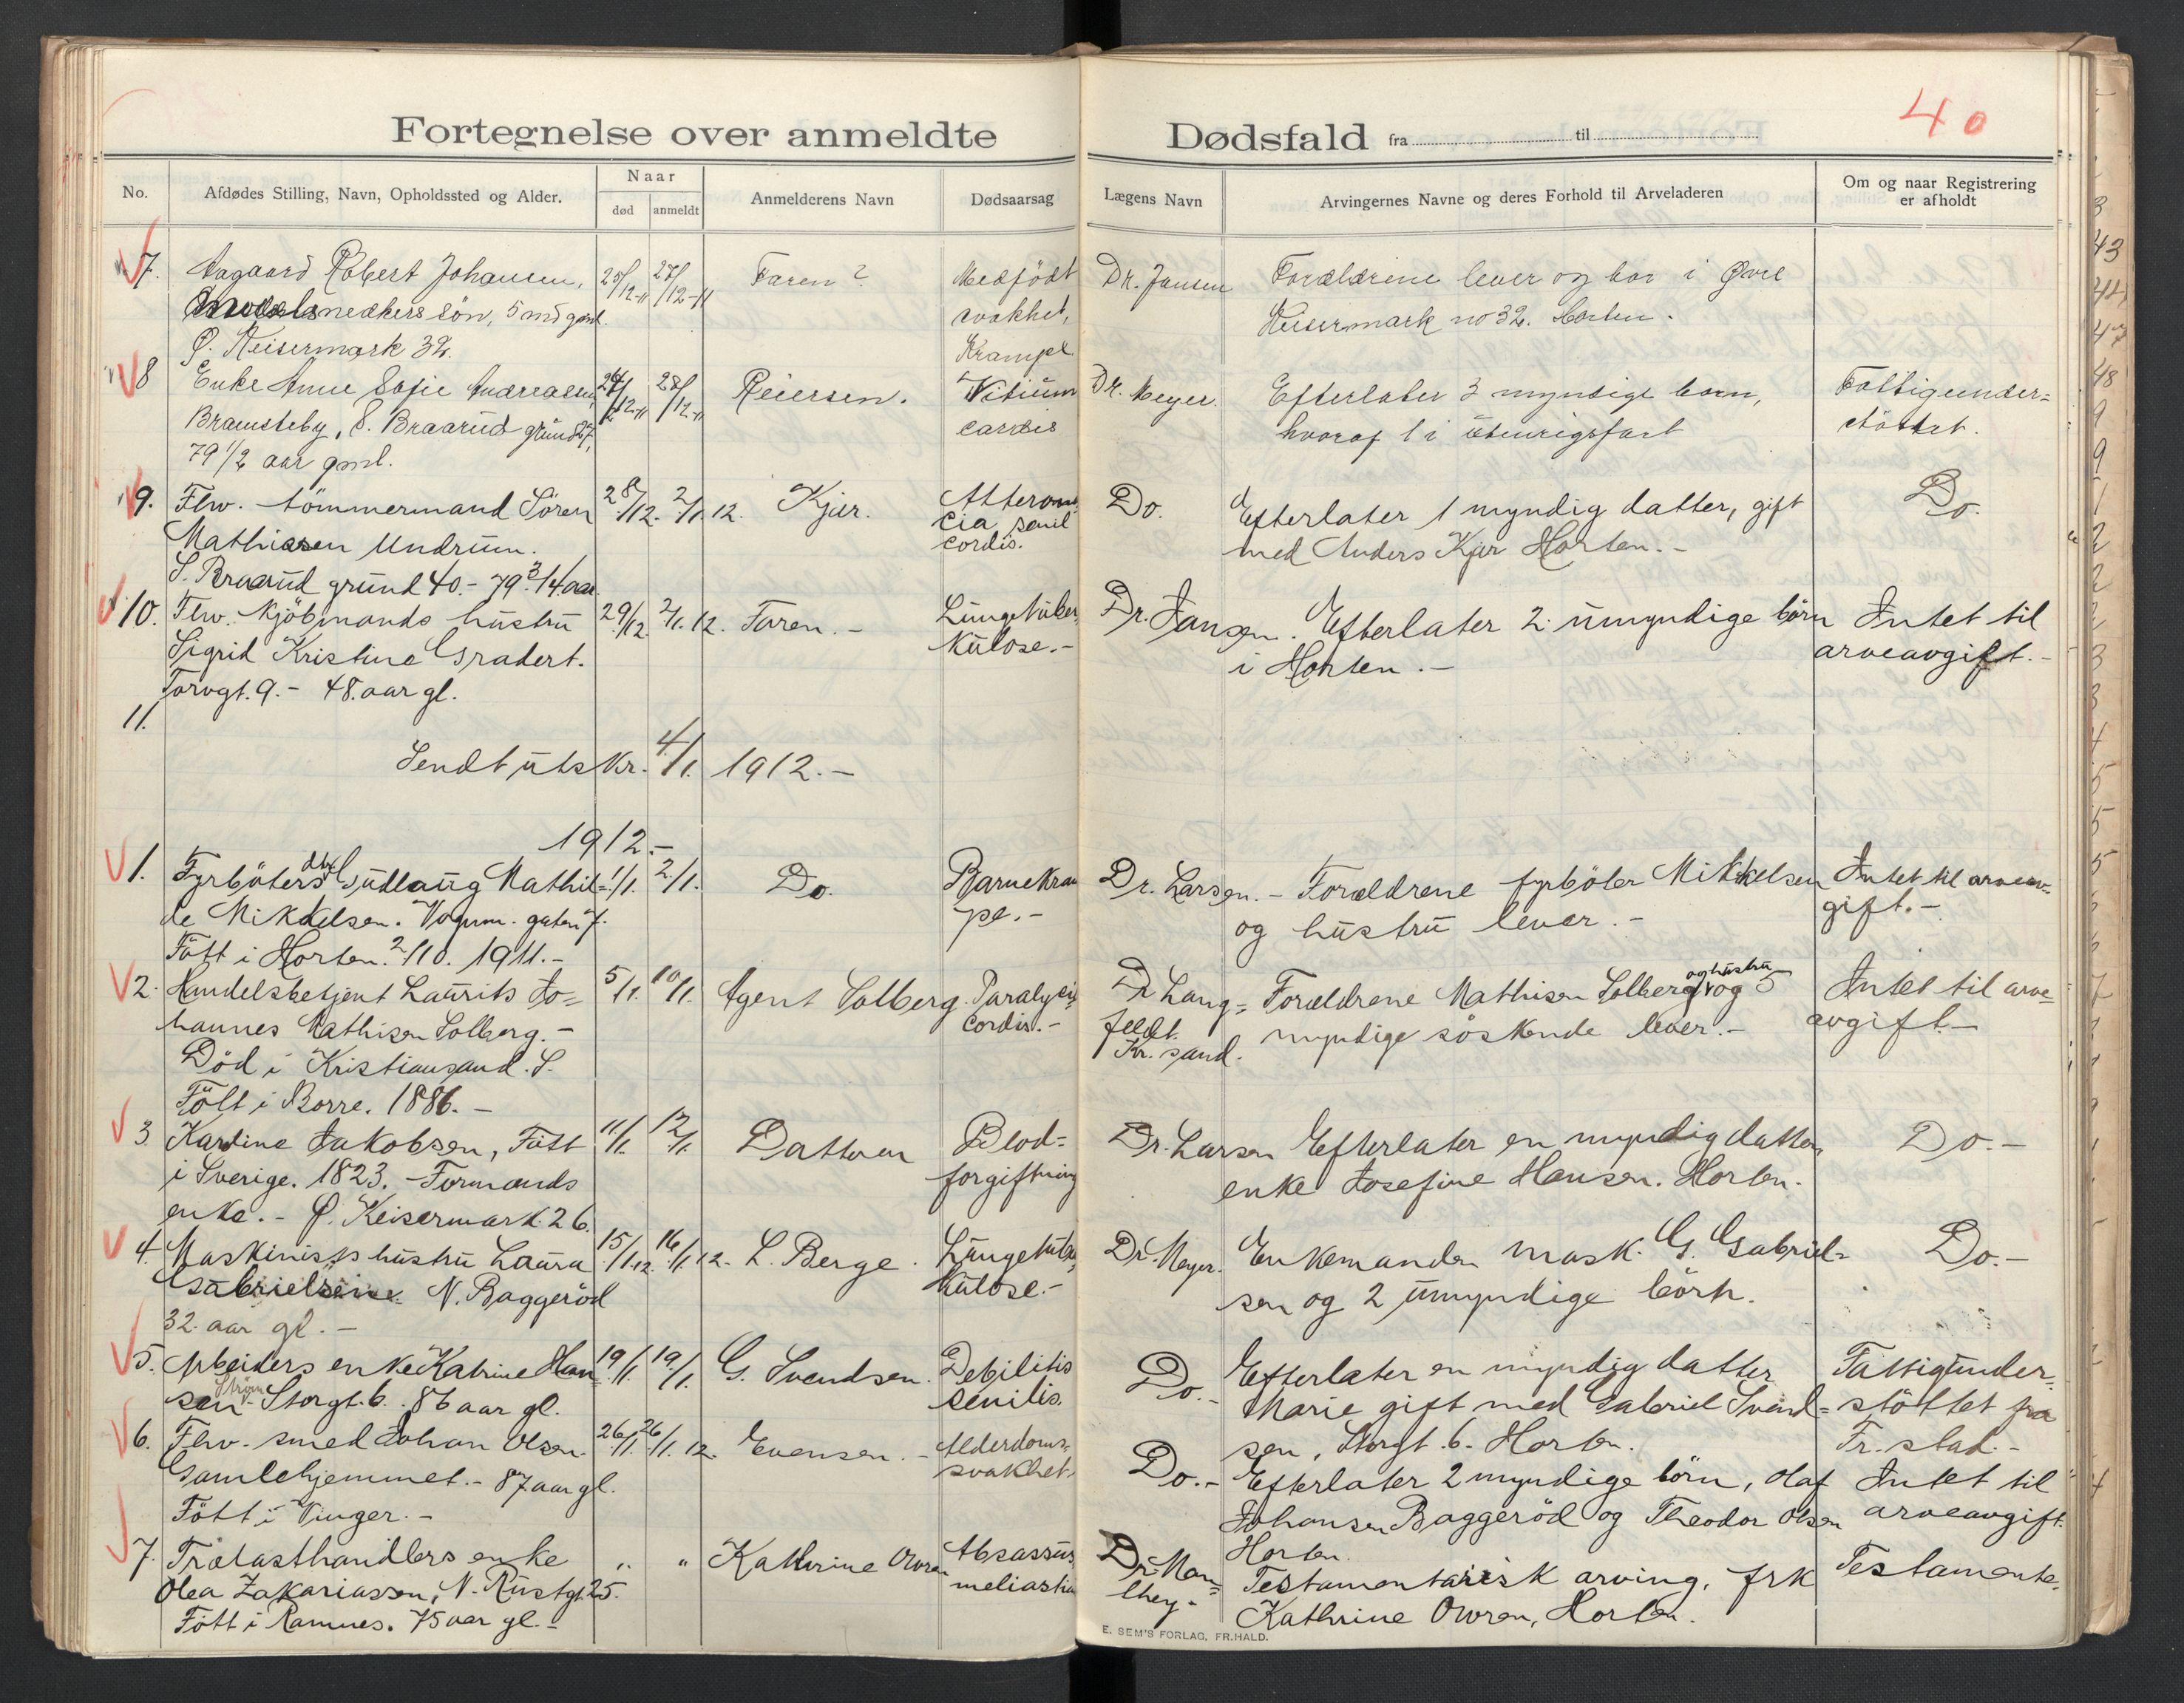 40
Fortegnelse over anmeldte Dødsfald fra til
No.
Afdødes Stilling, Navn, Opholdssted og Alder.
Naar
død
anmeldt
Anmelderens Navn
Dødsaarsag
Lægens Navn
Arvingernes Navne og deres Forhold til Arveladeren
Om og naar Registrering
er afholdt
7. Aagaard Robert Johansen, 25/12-11 27/12-11 Faren? Medfödt Dr. Jansen Forældrene lever og bor i Øvre
snedkers sön, 5 md gml. svakhet, Keisermark no 32. Horten.
Ø. Keisermark 32. Krampe
8 Enke Anne Sofie Andreasen 24/12-11 28/12-11 Reiersen. Vitium Dr. Meyer. Efterlater 3 myndige barn, Fattigunder=
Bramsteby, S. Braarud grund 27, cordis hvoraf 1 i utenrigsfart støttet.
79 1/2 aar gml.
9. Flw. tömmermand Sören 28/12. 2/1.12. Kjær. Do. Efterlater 1 myndig datter, gift Do.
Mathiasen Undrum. cia senil cordis. med Anders Kjær Horten.-
S. Braarud grund 40.- 79 3/4 aar
10. Flw. Kjöbmands hustru 29/12. 2/1.12. Faren.- Lungetuber Dr. Jansen. Efterlater 2 umyndige börn Intet til
Sigrid Kristine Gradert. kulose.- i Horten.- arveavgift.-
Torvgt. 9.- 48. aar gl.
11.
Sendt utskr. 4/1. 1912.-
1912.-
1. Fyrböters dtr Gudlaug Mathil= 1/1. 2/1. Do. Barnekram Dr. Larsen.- Forældrene fyrböter Mikkelsen Intet til arveav=
de Mikkelsen. Vognm. gaten 7. pe.- og hustru lever.- gift.-
Fött i Horten 2/10. 1911.-
2. Handelsbetjent Laurits Jo= 5/1. 10/1. Agent Solberg. Paralysis Dr Lang= Forældrene Mathisen Solberg og hustru og 5 Intet til arve=
hannes Mathisen Solberg.- cordis.- feldt. Kr. sand. myndige söskende lever.- avgift.-
Död i Kristiansand. S.
Fött i Borre. 1886.-
3 Kardine Jakobsen, Fött 11/1. 12/1. Datteren Blod= Dr. Larsen Efterlater en myndig datter, Do.-
i Sverige. 1823.- Formands forgiftning enke Josefine Hansen. Horten.
enke.- Ø. Keisermark. 26.
4. Maskinists hustru Laura 15/1.12. 16/1.12. L. Berge. Lungetuber Dr. Meyer. Enkemanden mask. G. Gabriel= Do.-
Gabrielsen N. Baggeröd kulose.- sen og 2 umyndige börn.
32. aar gl.-
5. Arbeiders enke Katrine Han 19/1. 19/1. G. Svendsen. Debilitis Do.- Efterlater en myndig datter Fattigunder=
sen Ström Storgt. 6. 86 aar gl. senilis. Marie gift med Gabriel Svend= støttet fra
sen, Storgt. 6. Horten. Fr. stad.-
6. Flw. smed Johan Olsen. 26/1. 26/1.12. Evensen.- Alderdoms= Do.- Efterlater 2 myndige börn, Olaf Intet til
Gamlehjemmet.- 87 aar gl. svakhet. Johansen Baggeröd og Theodor Olsen arveavgift.
Fött i Vinger.- Horten.
7. Trælasthandlers enke „ „ Kathrine Owren Testamentarisk arving, frk Testamente.
Olea Zakariassen, N. Rustgt. 25. Kathrine Owren, Horten.
Fött i Ramnes. 75 aar gl.-
E. SEM'S FORLAG, FR.HALD.